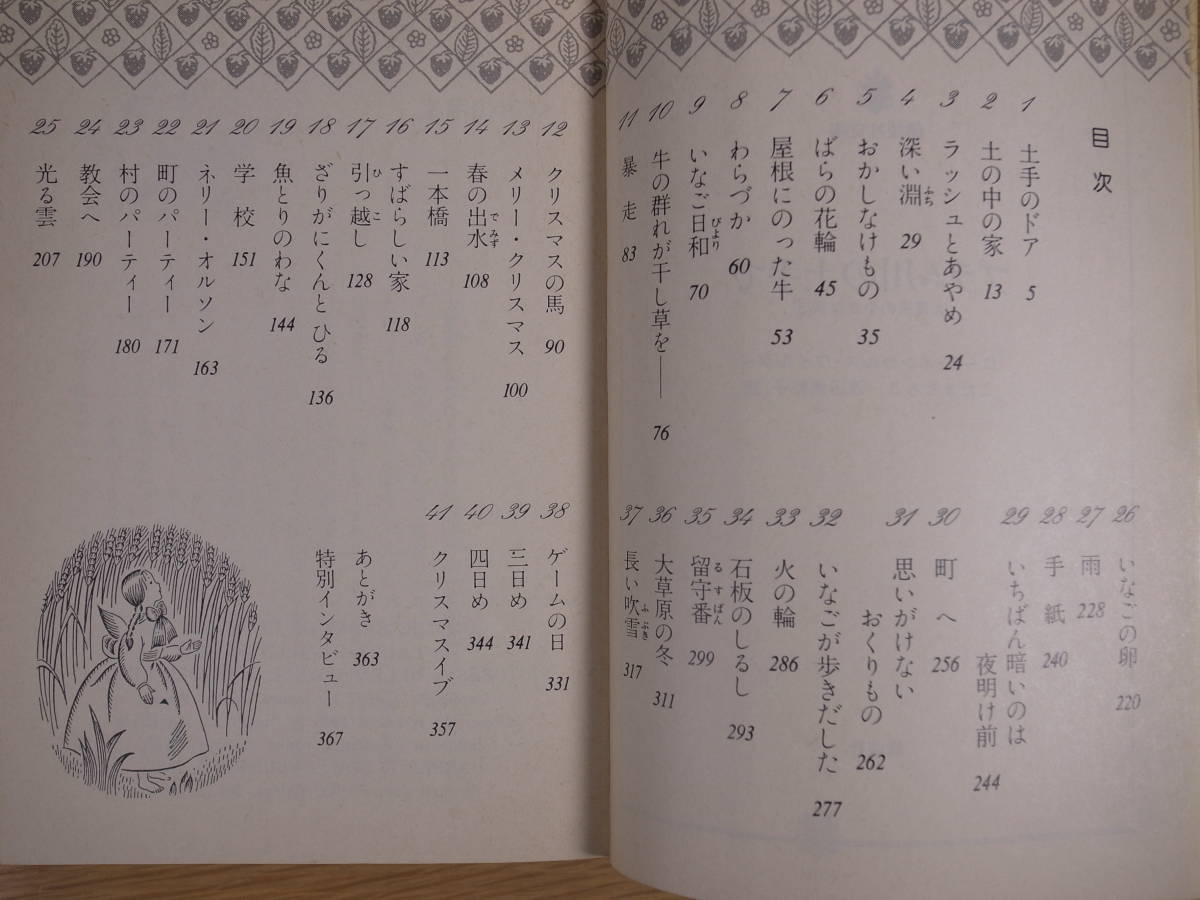 目次
1 土手のドア 5
2 土の中の家 13
3 ラッシュとあやめ 24
4 深い淵 ふち 29
5 おかしなけもの 35
6 ばらの花輪 45
7 屋根にのった牛 53
8 わらづか 60
9 いなご日和 びより 70
10 牛の群れが干し草を―― 76
11 暴走 83
12 クリスマスの馬 90
13 メリー・クリスマス 100
14 春の出水 でみず 108
15 一本橋 113
16 すばらしい家 118
17 引っ越し ひ こ 128
18 ざりがにくんと ひる 136
19 魚とりのわな 144
20 学校 151
21 ネリー・オルソン 163
22 町のパーティー 171
23 村のパーティー 180
24 教会へ 190
25 光る雲 207
26 いなごの卵 220
27 雨 228
28 手紙 240
29 いちばん暗いのは
夜明け前 244
30 町へ 256
31 思いがけない
おくりもの 262
32 いなごが歩きだした 277
33 火の輪 286
34 石板のしるし 293
35 留守番 るすばん 299
36 大草原の冬 311
37 長い吹雪 ふぶき 317
38 ゲームの日 331
39 三日め 341
40 四日め 344
41 クリスマスイブ 357
あとがき 363
特別インタビュー 367